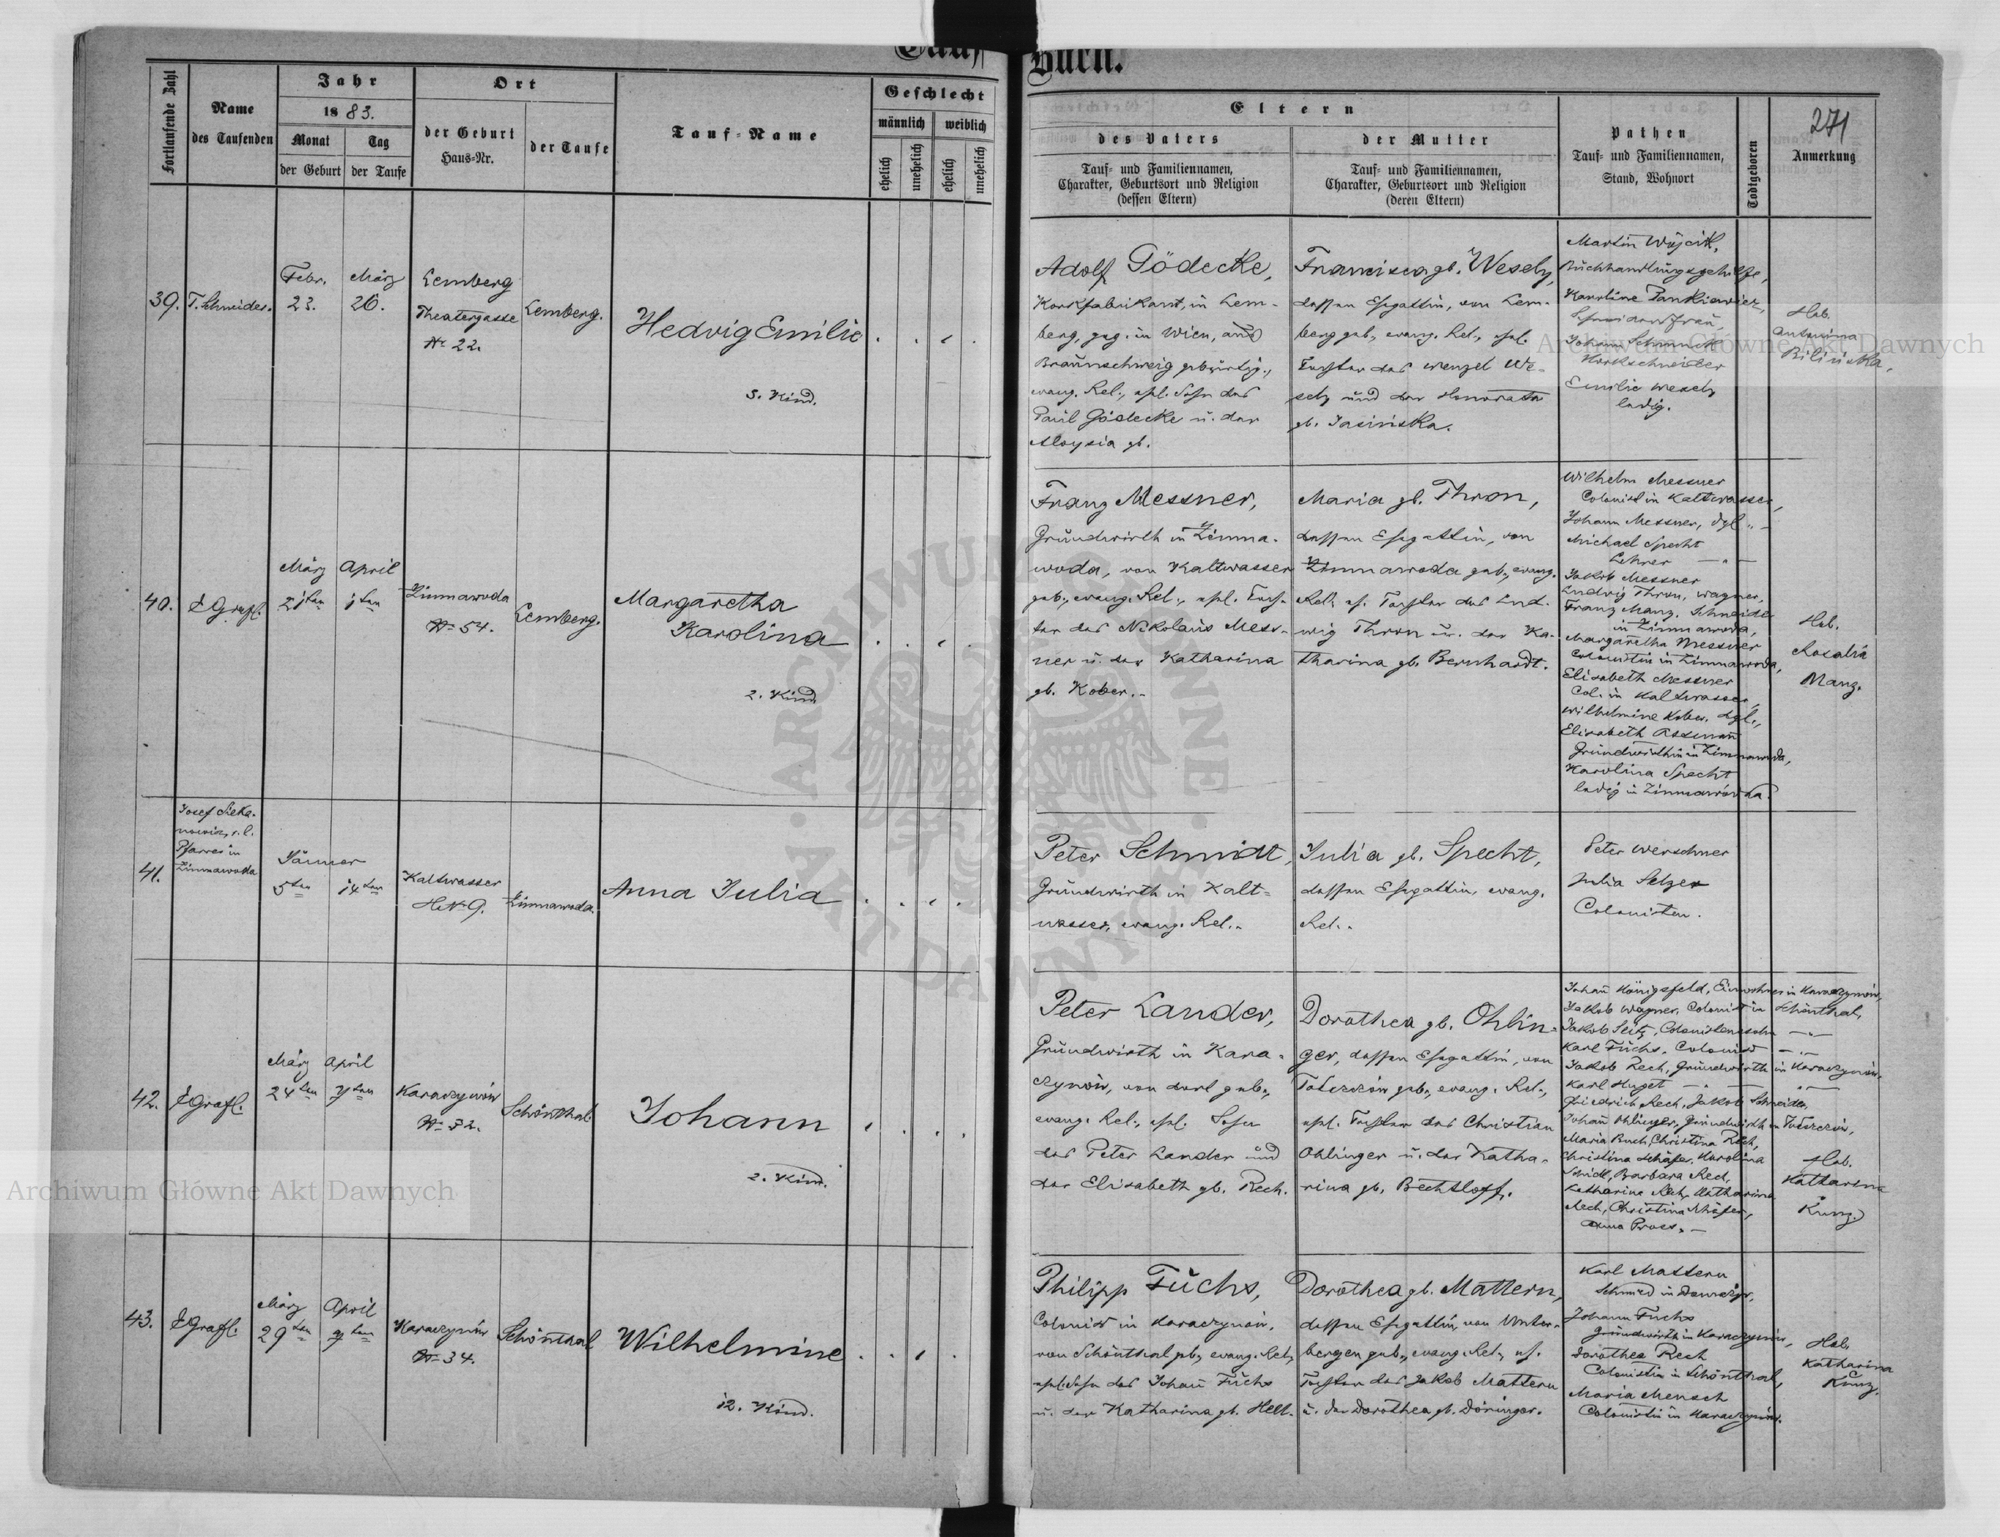 Tauf
Buch.
271
Fortlaufende Zahl
Name
des Taufenden
Jahr
1883.
Monat
der Geburt
Tag
der Taufe
Ort
der Geburt
Haus-Nr.
der Taufe
Tauf-Name
Geschlecht
männlich
weiblich
ehelich
unehelich
ehelich
unehelich
Eltern
des Vaters
Tauf- und Familiennamen,
Charakter, Geburtsort und Religion
(dessen Eltern)
der Mutter
Tauf- und Familiennamen,
Charakter, Geburtsort und Religion
(deren Eltern)
Pathen
Tauf- und Familiennamen,
Stand, Wohnort
Todtgeboren
Anmerkung
39.
T. Schneider.
Febr.
23.
März
26.
Lemberg
Theatergasse
Nr 22.
Lemberg.
Hedvig Emilie
5. Kind.
Adolf Gödecke,
Korkfabrikant, in Lem-
berg, geg. in Wien, aus
Braunschweig gebürtig.,
evang. Rel., ehel. Sohn des
Paul Gödecke u. der
Aloysia gb.
Francisca gb. Wesely,
dessen Ehegattin, von Lem-
berg geb., evang. Rel., ehel.
Tochter des Wenzel We-
sely und der Honorata
gb. Jasińska.
Martin Wójcik,
Buchhandlungsgehilfe,
Karoline Pankiewicz,
Schneidersfrau,
Johann
Korkschneider
Emilie Wesely
ledig.
Heb.
Antonina
Bilińska,
40.
E Grafl.
März
21ten
April
1ten
Zimnawoda
Nr 54.
Lemberg.
Margaretha
Karolina
2. Kind
Franz Messner,
Grundwirth in Zimna-
woda, von Kaltwasser
geb., evang. Rel., ehel.
des Nikolaus Mess-
ner u. der Katharina
gb. Kober.
Maria gb. Thron,
dessen Ehegattin, von
Zimnawoda geb., evang.
Rel., eh. Tochter des Lud-
wig Thron u. der Ka-
tharina gb. Bernhardt.
Wilhelm Messner
Colonist in Kaltwasser,
Johann Messner, dgl. "
Michael Specht
Lehrer — " —
Jakob Messner
Ludwig Thron, Wagner,
Franz Manz, Schneider
in Zimnawoda,
Margaretha Messner
Colonistin in Zimnawoda,
Elisabeth Messner
Col. in Kaltwasser,
Wilhelmine Kober, dgl.,
Elisabeth Assmann
Grundwirthin in Zimnawoda,
Karolina Specht
ledig in Zimnawoda.
Heb.
Rosalia
Manz.
41.
Josef
r. l.
Pfarrer in
Zimnawoda
Jänner
5ten
14ten
Kaltwasser
HNr 9.
Zimnawoda.
Anna Julia
Peter Schmidt,
Grundwirth in Kalt-
wasser, evang. Rel.
Julia gb. Specht,
dessen Ehegattin, evang.
Rel.
Peter Werschner
Julia Selzer
Colonisten.
42.
E Grafl.
März
24ten
April
Karaczynów
Nr 52.
Schönthal
Johann
2. Kind.
Peter Lander,
Grundwirth in Kara-
czynów, von dort geb.,
evang. Rel., ehel. Sohn
des Peter Lander und
der Elisabeth gb. Rech.
Dorothea gb. Ohlin-
ger, dessen Ehegattin, von
geb., evang. Rel.,
ehel. Tochter des Christian
Ohlinger u. der Katha-
rina gb. Bechtloff.
Johann Königsfeld, Einwohner in Karaczynów,
Jakob Wagner, Colonist in Schönthal,
Jakob Seitz, Colonistensohn — " —
Karl Fuchs, Colonist — " —
Jakob Rech, Grundwirth in Karaczynów,
Karl Huget — " —
Friedrich Rech, Jakob Schneider,
Johann Ohlinger, Grundwirth in
Maria Buch, Christina Rech,
Christina Schäfer, Karolina
Barbara Rech,
Katharina Rech, Katharina
Rech, Christina Schäfer,
Anna
Heb.
Katharina
Kunz.
43.
E Grafl.
März
29ten
April
Karaczynów
Nr 34.
Schönthal
Wilhelmine
12. Kind.
Philipp Fuchs,
Colonist in Karaczynów,
von Schönthal geb., evang. Rel.,
ehel. Sohn des Johann Fuchs
u. der Katharina gb. Hell.
Dorothea gb. Mattern,
dessen Ehegattin, von Unter-
bergen geb., evang. Rel., eh.
Tochter des Jakob Mattern
u. der Dorothea gb. Döringer.
Karl Mattern
Schmied in
Johann Fuchs
Grundwirth in Karaczynów,
Dorothea Rech
Colonistin in Schönthal,
Maria Mensch
Colonistin in Karaczynów.
Heb.
Katharina
Kunz.
Archiwum Główne Akt Dawnych
Archiwum Główne Akt Dawnych
ARCHIWUM GŁÓWNE
AKT DAWNYCH